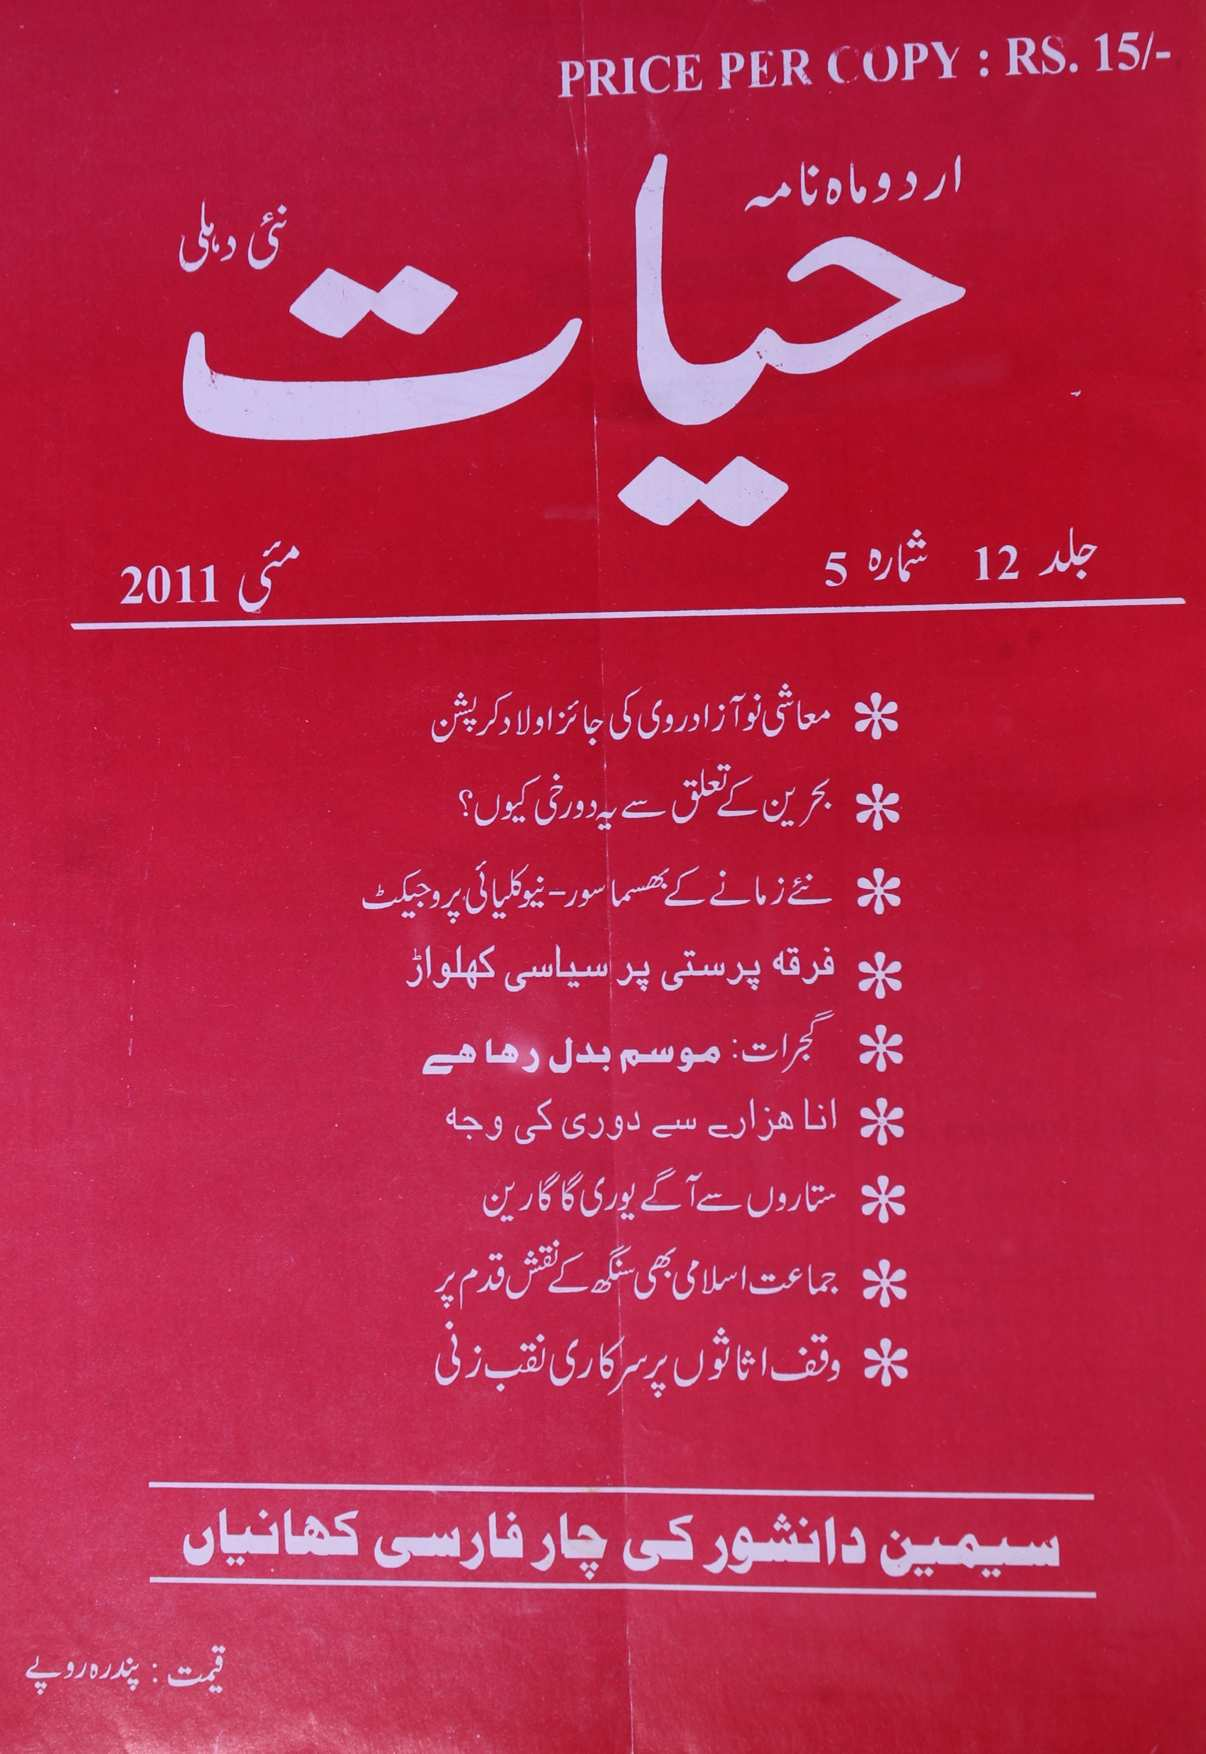 PRICE PER COPY : RS. 15/-
اردو ماہ نامہ
حیات
نئی دہلی
جلد 12 شمارہ 5
مئی 2011
✻ معاشی نو آزادروی کی جائز اولاد کرپشن
✻ بحرین کے تعلق سے یہ دورخی کیوں؟
✻ نئے زمانے کے بھسماسور – نیوکلیائی پروجیکٹ
✻ فرقہ پرستی پر سیاسی کھلواڑ
✻ گجرات: موسم بدل رھا ھے
✻ انا ھزارے سے دوری کی وجہ
✻ ستاروں سے آگے یوری گاگارین
✻ جماعت اسلامی بھی سنگھ کے نقش قدم پر
✻ وقف اثاثوں پر سرکاری نقب زنی
سیمین دانشور کی چار فارسی کھانیاں
قیمت : پندرہ روپے